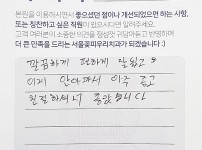 본원을 이용하시면서 좋으셨던 점이나 개선되었으면 하는 사항,
또는 칭찬하고 싶은 직원이 있으시다면 알려주세요.
고객 여러분의 소중한 의견을 정성껏 귀담아듣고 반영하여
더 큰 만족을 드리는 서울꽃피우리치과가 되겠습니다 :)
깔끔하게 편하게 잘 있고
이게 안아파서 아주 좋고
친절하셔서 좋았습니다